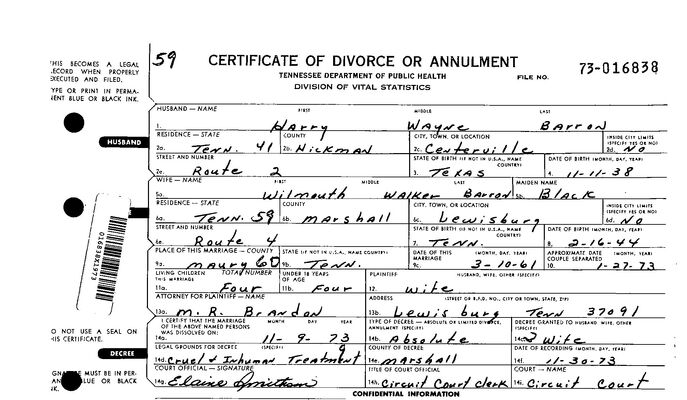 HIS BECOMES A LEGAL
ECORD WHEN PROPERLY
XECUTED AND FILED.
YPE OR PRINT IN PERMA-
ENT BLUE OR BLACK INK.
59 CERTIFICATE OF DIVORCE OR ANNULMENT
TENNESSEE DEPARTMENT OF PUBLIC HEALTH
DIVISION OF VITAL STATISTICS
FILE NO. 73-016838
HUSBAND
HUSBAND — NAME FIRST MIDDLE LAST
1. Harry Wayne Barron
RESIDENCE — STATE COUNTY CITY, TOWN, OR LOCATION INSIDE CITY LIMITS (SPECIFY YES OR NO)
2a. Tenn. 41 2b. Hickman 2c. Centerville 2d. No
STREET AND NUMBER STATE OF BIRTH (IF NOT IN U.S.A., NAME COUNTRY) DATE OF BIRTH (MONTH, DAY, YEAR)
2e. Route 2 3. Texas 4. 11-11-38
WIFE — NAME FIRST MIDDLE LAST MAIDEN NAME
5a. Wilmouth Walker Barron 5b. Black
RESIDENCE — STATE COUNTY CITY, TOWN, OR LOCATION INSIDE CITY LIMITS (SPECIFY YES OR NO)
6a. Tenn. 59 6b. Marshall 6c. Lewisburg 6d. No
STREET AND NUMBER STATE OF BIRTH (IF NOT IN U.S.A., NAME COUNTRY) DATE OF BIRTH (MONTH, DAY, YEAR)
6e. Route 4 7. Tenn. 8. 2-16-44
PLACE OF THIS MARRIAGE — COUNTY STATE (IF NOT IN U.S.A., NAME COUNTRY) DATE OF THIS MARRIAGE (MONTH, DAY, YEAR) APPROXIMATE DATE COUPLE SEPARATED (MONTH, DAY, YEAR)
9a. Maury 60 9b. Tenn. 9c. 3-10-61 10. 1-27-73
LIVING CHILDREN TOTAL NUMBER UNDER 18 YEARS OF AGE PLAINTIFF HUSBAND, WIFE, OTHER (SPECIFY)
11a. Four 11b. Four 12. Wife
ATTORNEY FOR PLAINTIFF — NAME ADDRESS (STREET OR R.F.D. NO., CITY OR TOWN, STATE, ZIP)
13a. M. R. Brandon 13b. Lewisburg Tenn 37091
I CERTIFY THAT THE MARRIAGE OF THE ABOVE NAMED PERSONS WAS DISSOLVED ON: MONTH DAY YEAR TYPE OF DECREE — ABSOLUTE OR LIMITED DIVORCE, ANNULMENT (SPECIFY) DECREE GRANTED TO HUSBAND, WIFE, OTHER (SPECIFY)
14a. 11-9-73 14b. Absolute 14c. 2 Wife
DECREE
LEGAL GROUNDS FOR DECREE (SPECIFY) 9 COUNTY OF DECREE DATE OF RECORDING (MONTH, DAY, YEAR)
14d. Cruel & Inhuman Treatment 14e. Marshall 14f. 11-30-73
COURT OFFICIAL — SIGNATURE TITLE OF COURT OFFICIAL COURT — NAME
14g. Elaine 14h. Circuit Court Clerk 14i. Circuit Court
CONFIDENTIAL INFORMATION
O NOT USE A SEAL ON
HIS CERTIFICATE.
MUST BE IN PER-
BLUE OR BLACK
016838N1973